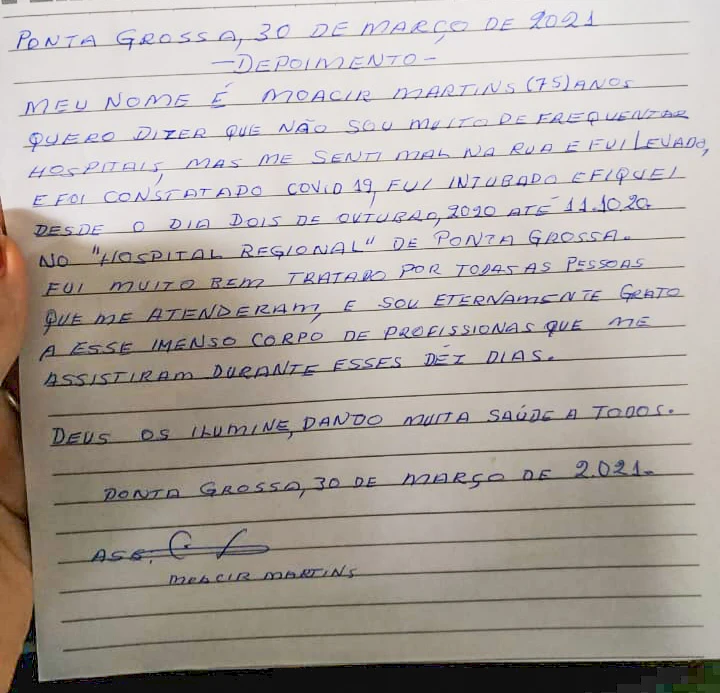 PONTA GROSSA, 30 DE MARÇO DE 2021
-DEPOIMENTO-
MEU NOME É MOACIR MARTINS (75) ANOS
QUERO DIZER QUE NÃO SOU MUITO DE FREQUENTAR
HOSPITAIS, MAS ME SENTI MAL NA RUA E FUI LEVADO,
E FOI CONSTATADO COVID 19, FUI INTUBADO E FIQUEI
DESDE O DIA DOIS DE OUTUBRO, 2020 ATÉ 11.10 20.
NO "HOSPITAL REGIONAL" DE PONTA GROSSA.
FUI MUITO BEM TRATADO POR TODAS AS PESSOAS
QUE ME ATENDERAM, E SOU ETERNAMENTE GRATO
A ESSE IMENSO CORPO DE PROFISSIONAS QUE ME
ASSISTIRAM DURANTE ESSES DEZ DIAS.
DEUS OS ILUMINE, DANDO MUITA SAÚDE A TODOS.
PONTA GROSSA, 30 DE MARÇO DE 2.021.
ASS:
MOACIR MARTINS